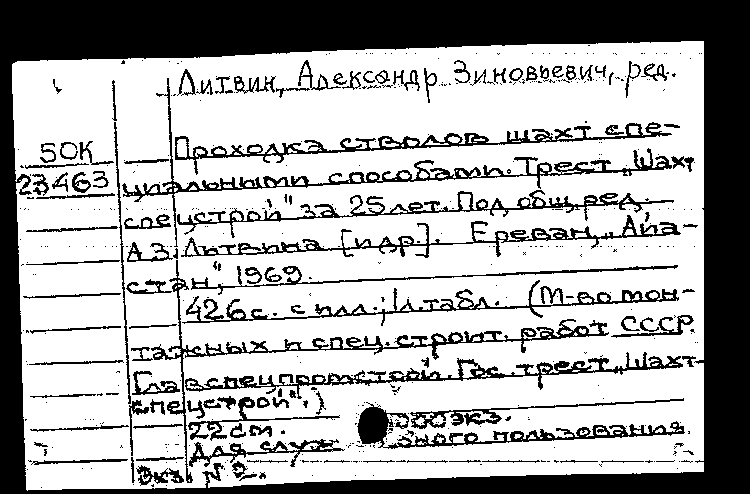 Литвин, Александр Зиновьевич, ред.
50К Проходка стволов шахт спе-
23463 циальными способами. Трест „Шахт
спецстрой" за 25 лет. Под общ. ред.
А.З. Литвина [и др.]. Ереван, „Айа-
стан", 1969.
426 с. с илл.; 1 л. табл. (М-во мон-
тажных и спец. строит. работ СССР.
Главспецпромстрой. Гос. трест „Шахт-
спецстрой".)
22 см. 000 экз.
Для служ бного пользования.
Экз. № 2.